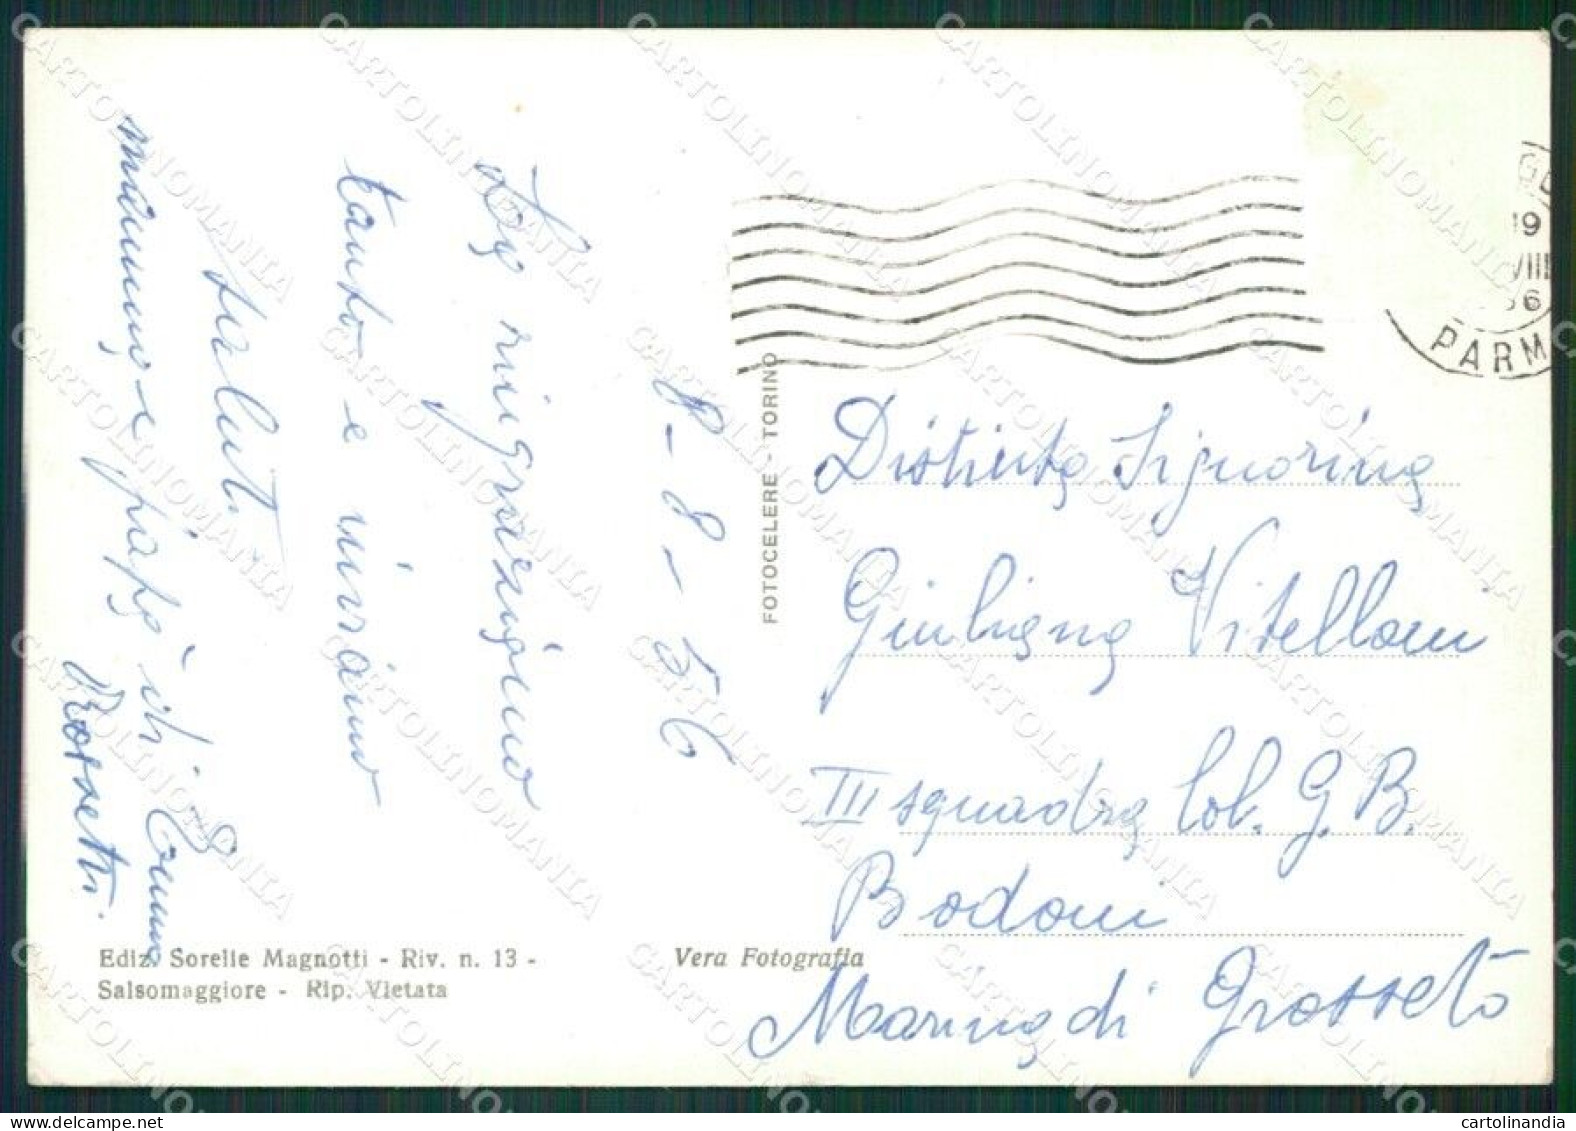 8-8-56
ringraziano
tanto e inviano
saluti.
mamma e papà di Emma
Rossetti.
FOTOCELERE - TORINO
19
VIII
56
PARM
Distinta Signorina
Giuliana Vitelloni
III squadra Col. G. B.
Bodoni
Marina di Grosseto
Ediz. Sorelle Magnotti - Riv. n. 13 -
Salsomaggiore - Rip. Vietata
Vera Fotografia
CARTOLINOMANIA
cartolinandia